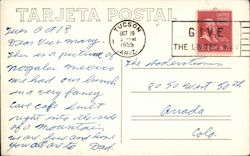 TARJETA POSTAL
TUCSON
OCT 19
1955
ARIZ.
GIVE
THE UNITED WAY
Tues Oct 18
Dear Rosemary
This is a picture of
Nogales Mexico
we had our lunch
in a very fancy
cave cafe built
right into the side
of a Mountain
Dad
The Soderstroms
80 50 West 50th
Arvada
Colo.